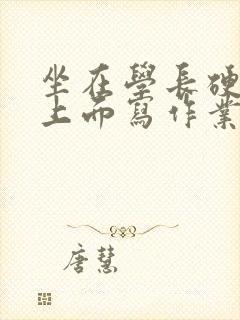 坐在學長硬
上面寫作業
唐慧